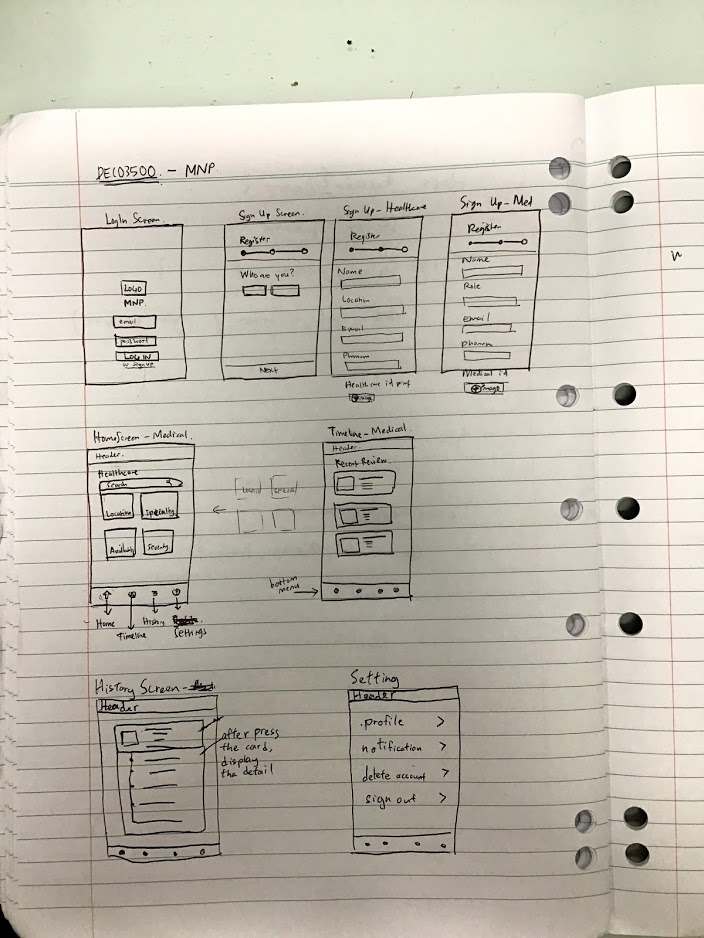 DECO3500. - MNP.
LogIn Screen.
LOGO
MNP.
email
password
LOG IN
or sign up
Sign Up Screen.
Register
Who are you?
Next
Sign Up - Healthcare
Register
Name
Location
Email
Healthcare id
image
Sign Up - Med
Register
Name
Role
email
Medical id
image
HomeScreen - Medical.
Header.
Healthcare
Search
Location
Specialty
Home
Timeline
History
Settings
Timeline - Medical.
Header
Recent Review
bottom
menu
History Screen -
Header
after press
the card,
display
the detail
Setting
Header
.profile >
notification >
delete account >
sign out >